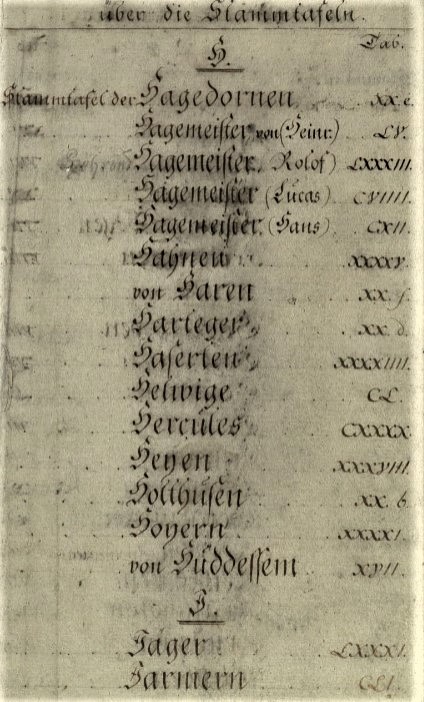 über die Stammtafeln.
H. Tab.
Stammtafel der Hagedornen XX.e.
Hagemeister von (Heinr.) LV.
Hagemeister, (Rolof) LXXXIII.
Hagemeister (Lucas) CVIIII.
Hagemeister. (Hans) CXII.
Hahnen XXXXV.
von Haren XX. f.
Harteger XX. d.
Haserten XXXXIIII.
Helwige CL.
Hercules CXXXX.
Heyen XXXVIII.
Holthusen XX. b.
Hoyern XXXXI.
von Hüddessem XVII.
J.
Jager LXXXI.
Jarmern CLI.